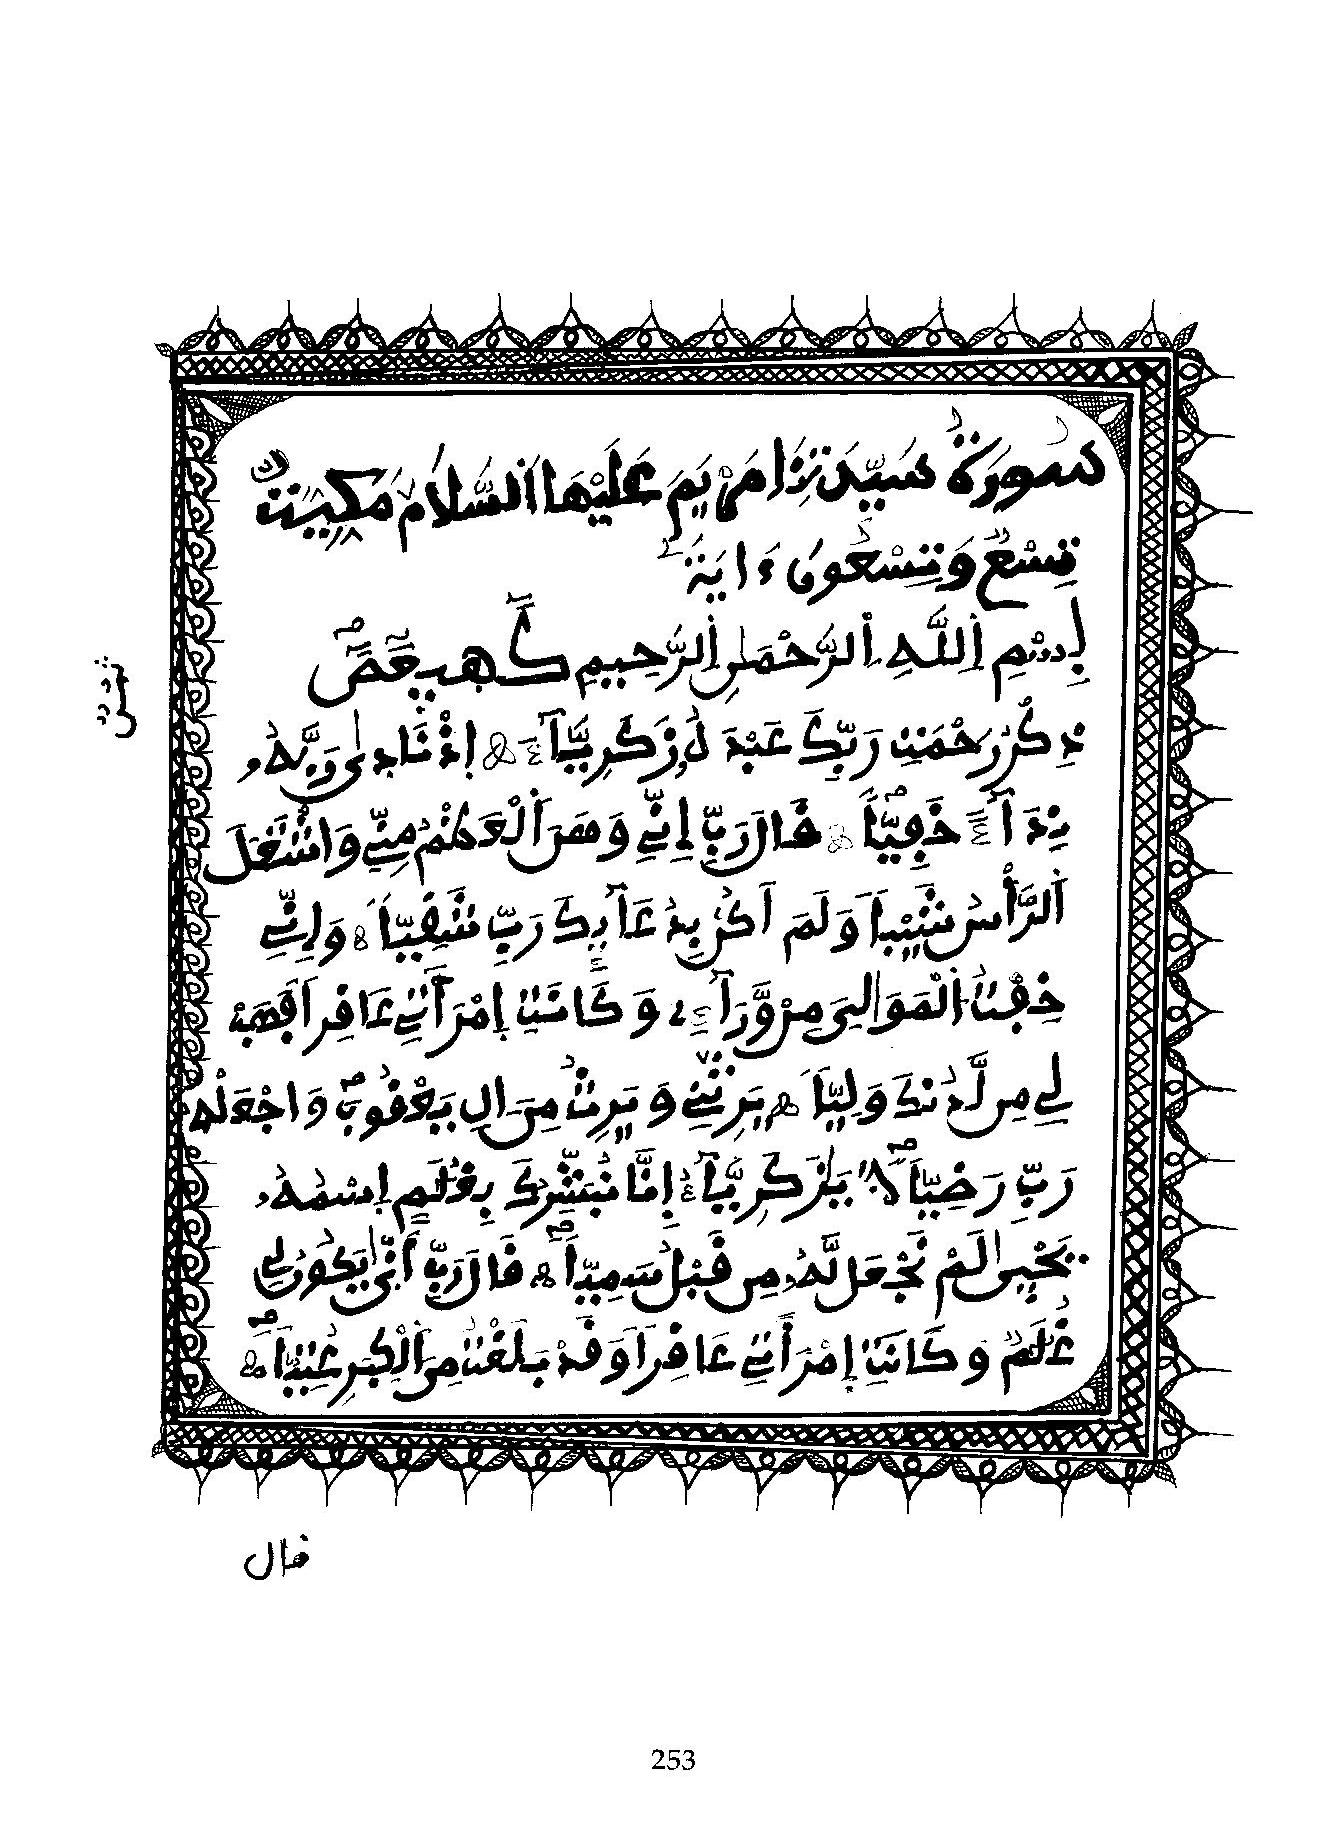 سُورَةُ سَيِّدَتِنَا مَرْيَمَ عَلَيْهَا السَّلَامُ مَكِّيَّةٌ
تِسْعٌ وَتِسْعُونَ ءَايَةً
بِسْمِ اِللَّهِ اِلرَّحْمَٰنِ اِلرَّحِيمِ كٓهيعٓصٓ
ذِكْرُ رَحْمَتِ رَبِّكَ عَبْدَهُۥ زَكَرِيَّآءَ اِذْ نَادٜىٰ رَبَّهُۥ
نِدَآءً خَفِيّاً قَالَ رَبِّ إِنِّے وَهَنَ اَلْعَظْمُ مِنِّے وَاشْتَعَلَ
اَلرَّأْسُ شَيْباً وَلَمَ اَكُنۢ بِدُعَآئِكَ رَبِّ شَقِيّاً وَإِنِّے
خِفْتُ اُلْمَوَٰلِيَ مِنْ وَّرَآءِے وَكَانَتِ إِمْرَأَتِے عَاقِراً فَهَبْ
لِے مِن لَّدُنكَ وَلِيّاً يَرِثُنِے وَيَرِثُ مِنَ اٰلِ يَعْقُوبَ وَاجْعَلْهُ
رَبِّ رَضِيّاً يَٰزَكَرِيَّآءُ اِنَّا نُبَشِّرُكَ بِغُلَٰمٍ اِسْمُهُۥ
يَحْيٜىٰ لَمْ نَجْعَل لَّهُۥ مِن قَبْلُ سَمِيّاً قَالَ رَبِّ أَنّٜىٰ يَكُونُ لِے
غُلَٰمٌ وَكَانَتِ إِمْرَأَتِے عَاقِراً وَقَدْ بَلَغْتُ مِنَ اَلْكِبَرِ عُتِيّاً
قال
253